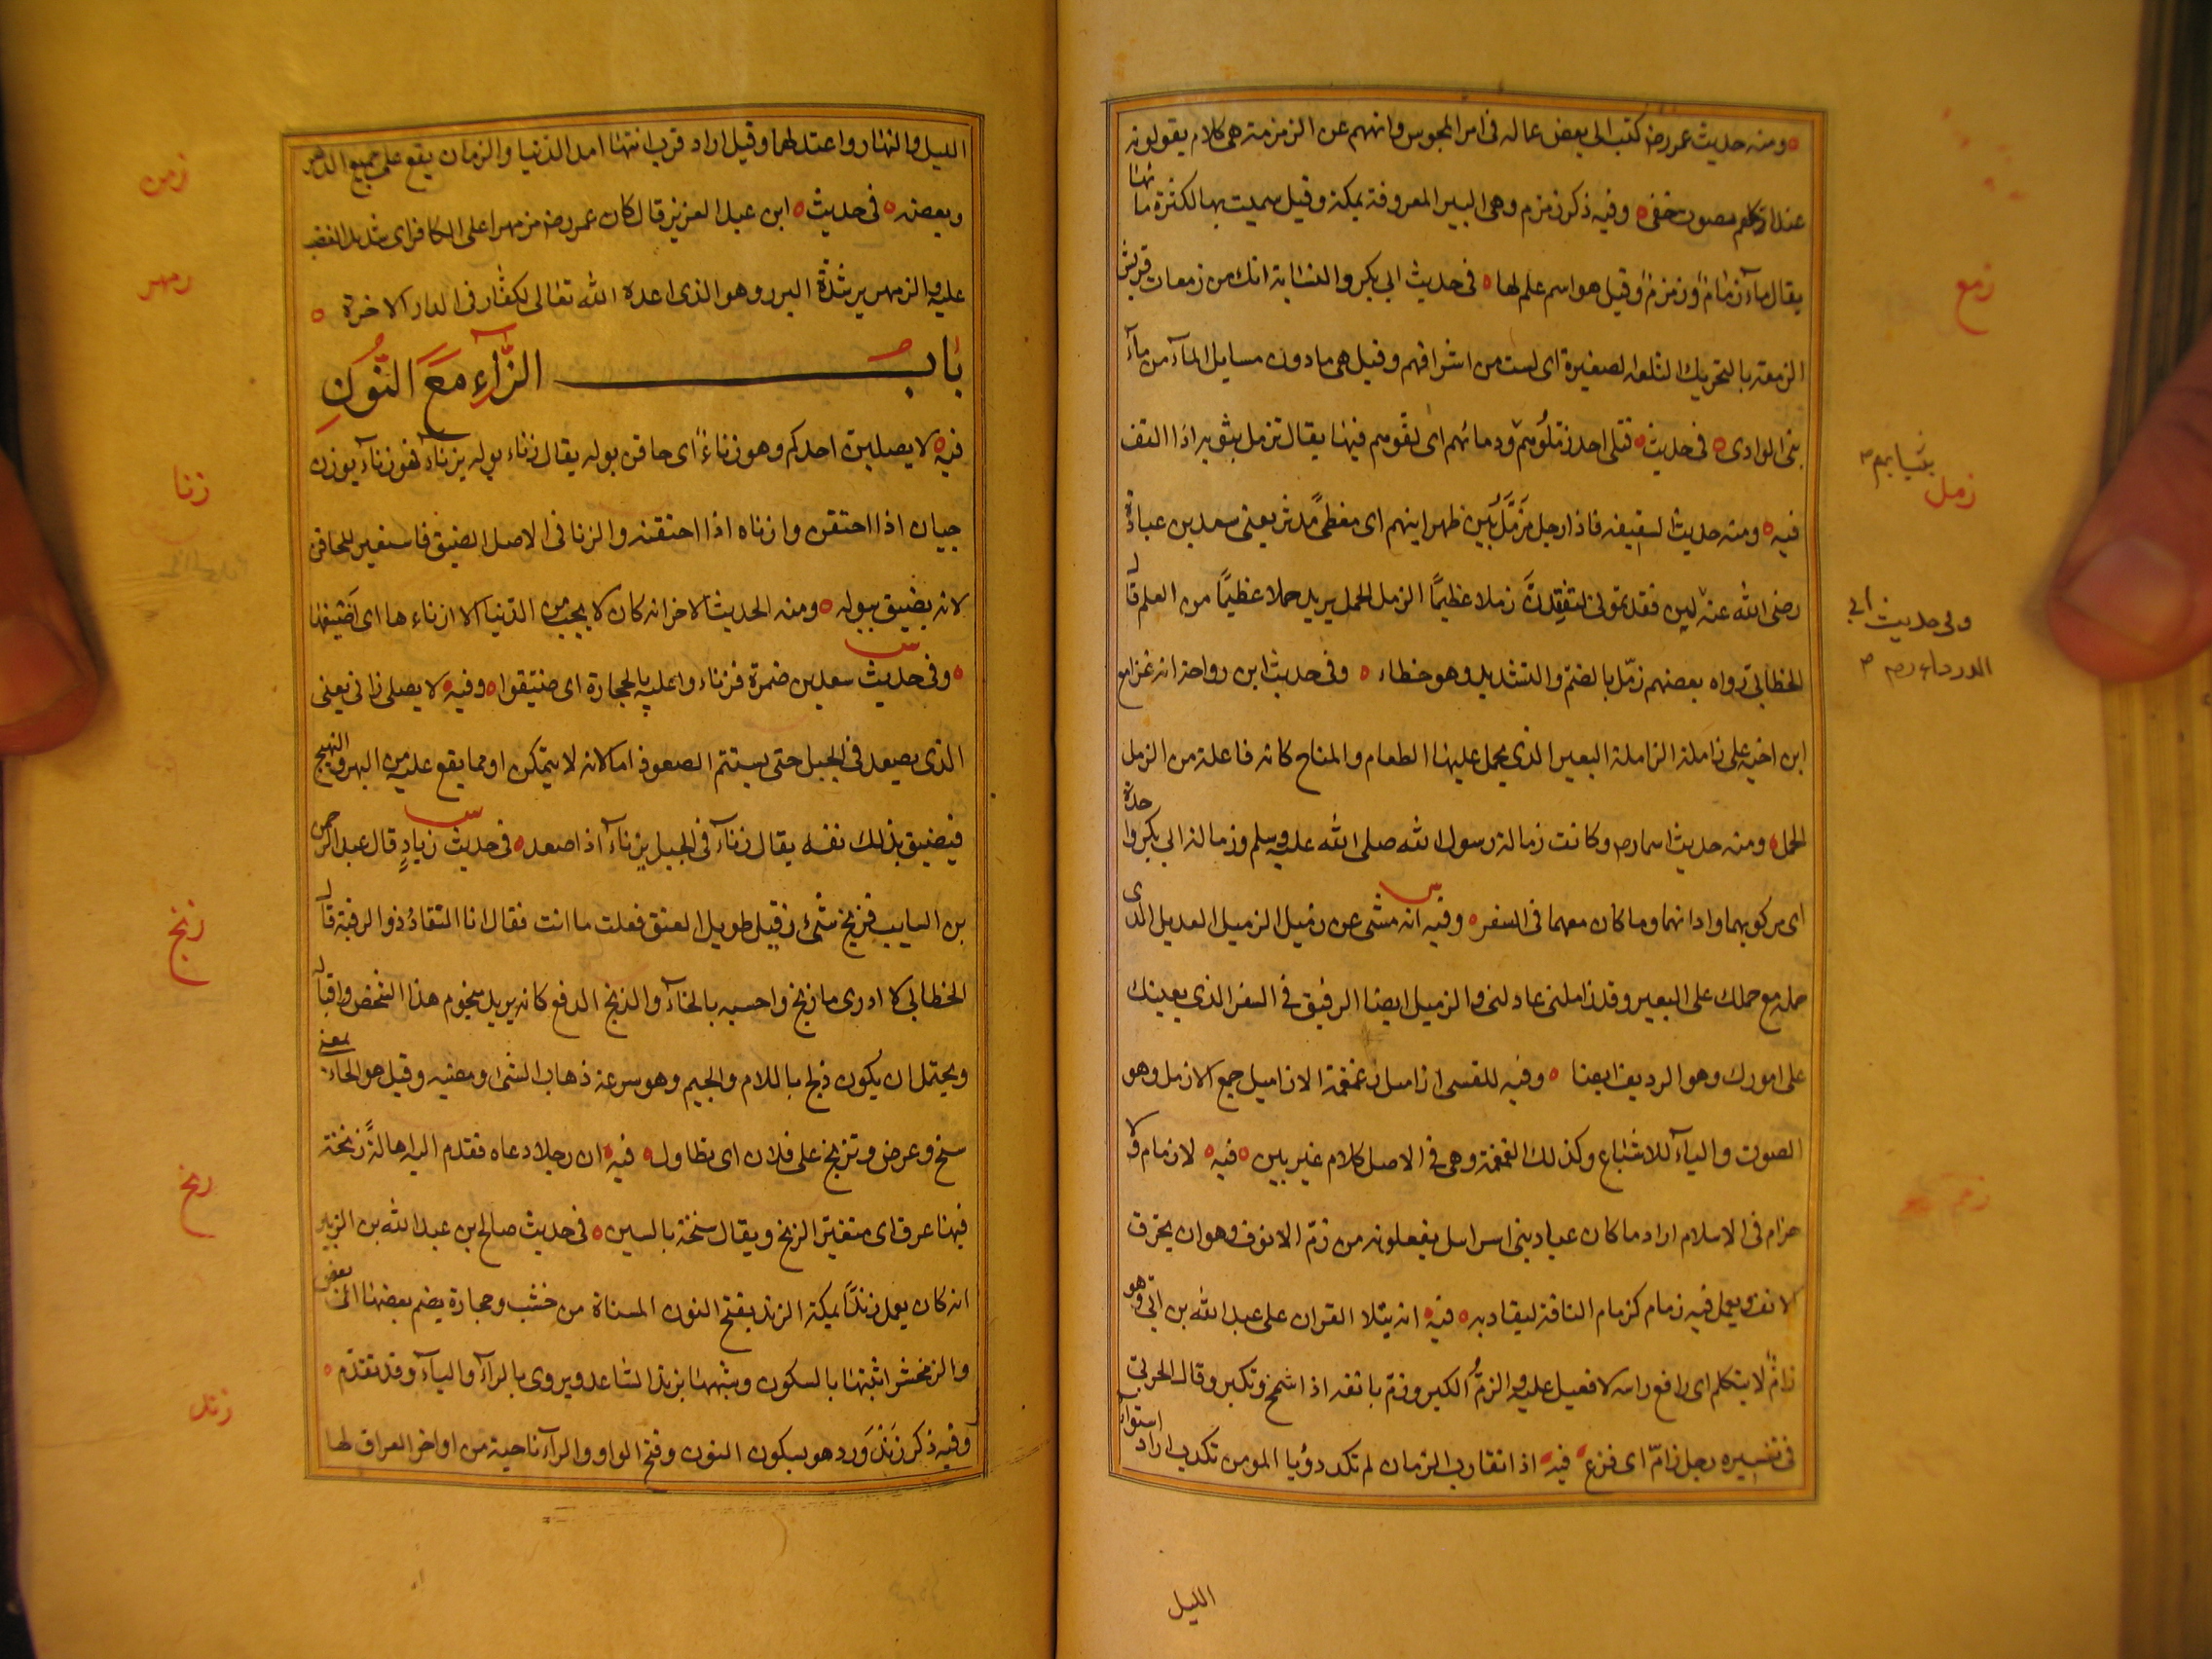 ه ومنه حديث عمر رضه كتب الى بعض عماله فى امر المجوس وانههم عن الزمزمة هى كلام يقولونه
عند اكلهم بصوت خفى ه وفيه ذكر زمزم وهى البير المعروفة بمكة وقيل سميت بها لكثرة مائها
يقال مآء زمام وزمزم وقيل هو اسم علم لها ه فى حديث ابى بكر والنسابة انك من زمعات قريش
الزمعة بالتحريك التلعة الصغيرة اى لست من اشرافهم وقيل هى مادون مسايل المآء من جانبى الوادى ه
فى حديث ه قتلى احد زملوهم ودمائهم اى لفوهم فيها يقال تزمل بثوبه اذا التف
فيه ه ومنه حديث السقيفة فاذا رجل مزمل بين ظهرانيهم اى مغطى مدثر يعنى سعد بن عبادة
رضى الله عنه لين فقدتمونى لتفقدن زملا عظيمًا الزمل الحمل يريد حملا عظيمًا من العلم قال
الخطابى رواه بعضهم زمّل بالضم والتشديد وهو خطاء ه وفى حديث ابن رواحة انه غزا مع
ابن اخيه على زاملة الزاملة البعير الذى يحمل عليها الطعام والمتاع كانه فاعلة من الزمل
الحمل ه ومنه حديث اسما رضه وكانت زمالة رسول الله صلى الله عليه وسلم وزمالة ابى بكر واحدة
اى مركوبهما واداتهما وما كان معهما فى السفر ه وفيه انه مشى عن زميل الزميل العديل الذى
حمله مع حملك على البعير وقد زاملنى عادلنى والزميل ايضا الرفيق فى السفر الذى يعينك
على امورك وهو الرديف ايضا ه وفيه للقسى ازاميل وغمغمة الازاميل جمع الازمل وهو
الصوت واليآء للاشباع وكذلك الغمغمة وهى فى الاصل كلام غير بين ه فيه ه لا زمام ولا
خزام فى الاسلام اراد ما كان عباد بنى اسرايل يفعلونه من زمّ الانوف وهو ان يخرق
الانف ويعمل فيه زمام كزمام الناقة ليقاد به ه فيه ه انه تلا القران على عبد الله بن ابى وهو
زامٌّ لا يتكلم اى رافع راسه لا فعيل عليه والزمُّ الكبر وزمّ بانفه اذا شمخ وتكبر وقال الحربى
فى تفسيره رجل زامّ اى فزع ه فيه ه اذا تقارب الزمان لم تكد رؤيا المومن تكذب اراد استوآء
زمع
بثيابهم ص
زمل
وفى حديث ابى
الدرداء رضه ص
زمم
الليل
الليل والنهار واعتدالهما وقيل اراد قرب انتها امد الدنيا والزمان يقع على جميع الدهر
وبعضه ه فى حديث ه ابن عبد العزيز قال كان عمر رضه مزمهرا على الكافر اى شديد الغضب
عليه والزمهرير شدّة البرد وهو الذى اعده الله تعالى للكفار فى الدار الاخرة ه
بَابُ الزَّآءِ مَعَ النُّونِ
فيه ه لا يصلين احدكم وهو زناءٌ اى حاقن بوله يقال زناء بوله يزنآء فهو زنآء بوزن
جبان اذا احتقن وازناه اذا احتقنه والزنا فى الاصل الضيق فاستعير للحاقن
لانه يضيق ببوله ه ومنه الحديث الاخر انه كان لا يحب من الدنيا الا ازناءها اى اضيقها
ه وفى حديث سعد بن ضمرة فزناءوا عليه بالحجارة اى ضيقوا ه وفيه لا يصلى زانى يعنى
الذى يصعد فى الجبل حتى يستتم الصعود اما لانه لا يتمكن او مما يقع عليه من البهر والنهيج
فيضيق بذلك نفسه يقال زنآء فى الجبل يزنآء اذا صعد ه فى حديث زيادٍ قال عبد الرحمن
بن السايب فزنج شىء اقبل طويل العنق فقلت ما انت فقال انا النقاد ذو الرقبة قال
الخطابى لا ادرى ما زنج واحسبه بالحآء والزنج الدفع كانه يريد هجوم هذا الشخص واقباله
ويحتمل ان يكون زلج باللام والجيم وهو سرعة ذهاب الشىء ومضيه وقيل هو بالحاء بمعنى
سنح وعرض وتزنح على فلان اى تطاول ه فيه ه ان رجلا دعاه فقدم اليه اهالةً زنخة
فيها عرق اى متغيرة الزنخ ويقال سنخة بالسين ه فى حديث صالح بن عبد الله بن الزبير
انه كان يعمل زندًا بمكة الزند بفتح النون المسناة من خشب وحجارة يضم بعضها الى بعض
والزمخشرى اثبتها بالسكون وشبهها بزند الساعد ويروى بالرآء والبآء وقد تقدّم ه
وفيه ذكر زَنْدَوَرد هو بسكون النون وفتح الواو والرآء ناحية من اواخر العراق لها
زمن
زمهر
زنا
زنج
زنخ
زند